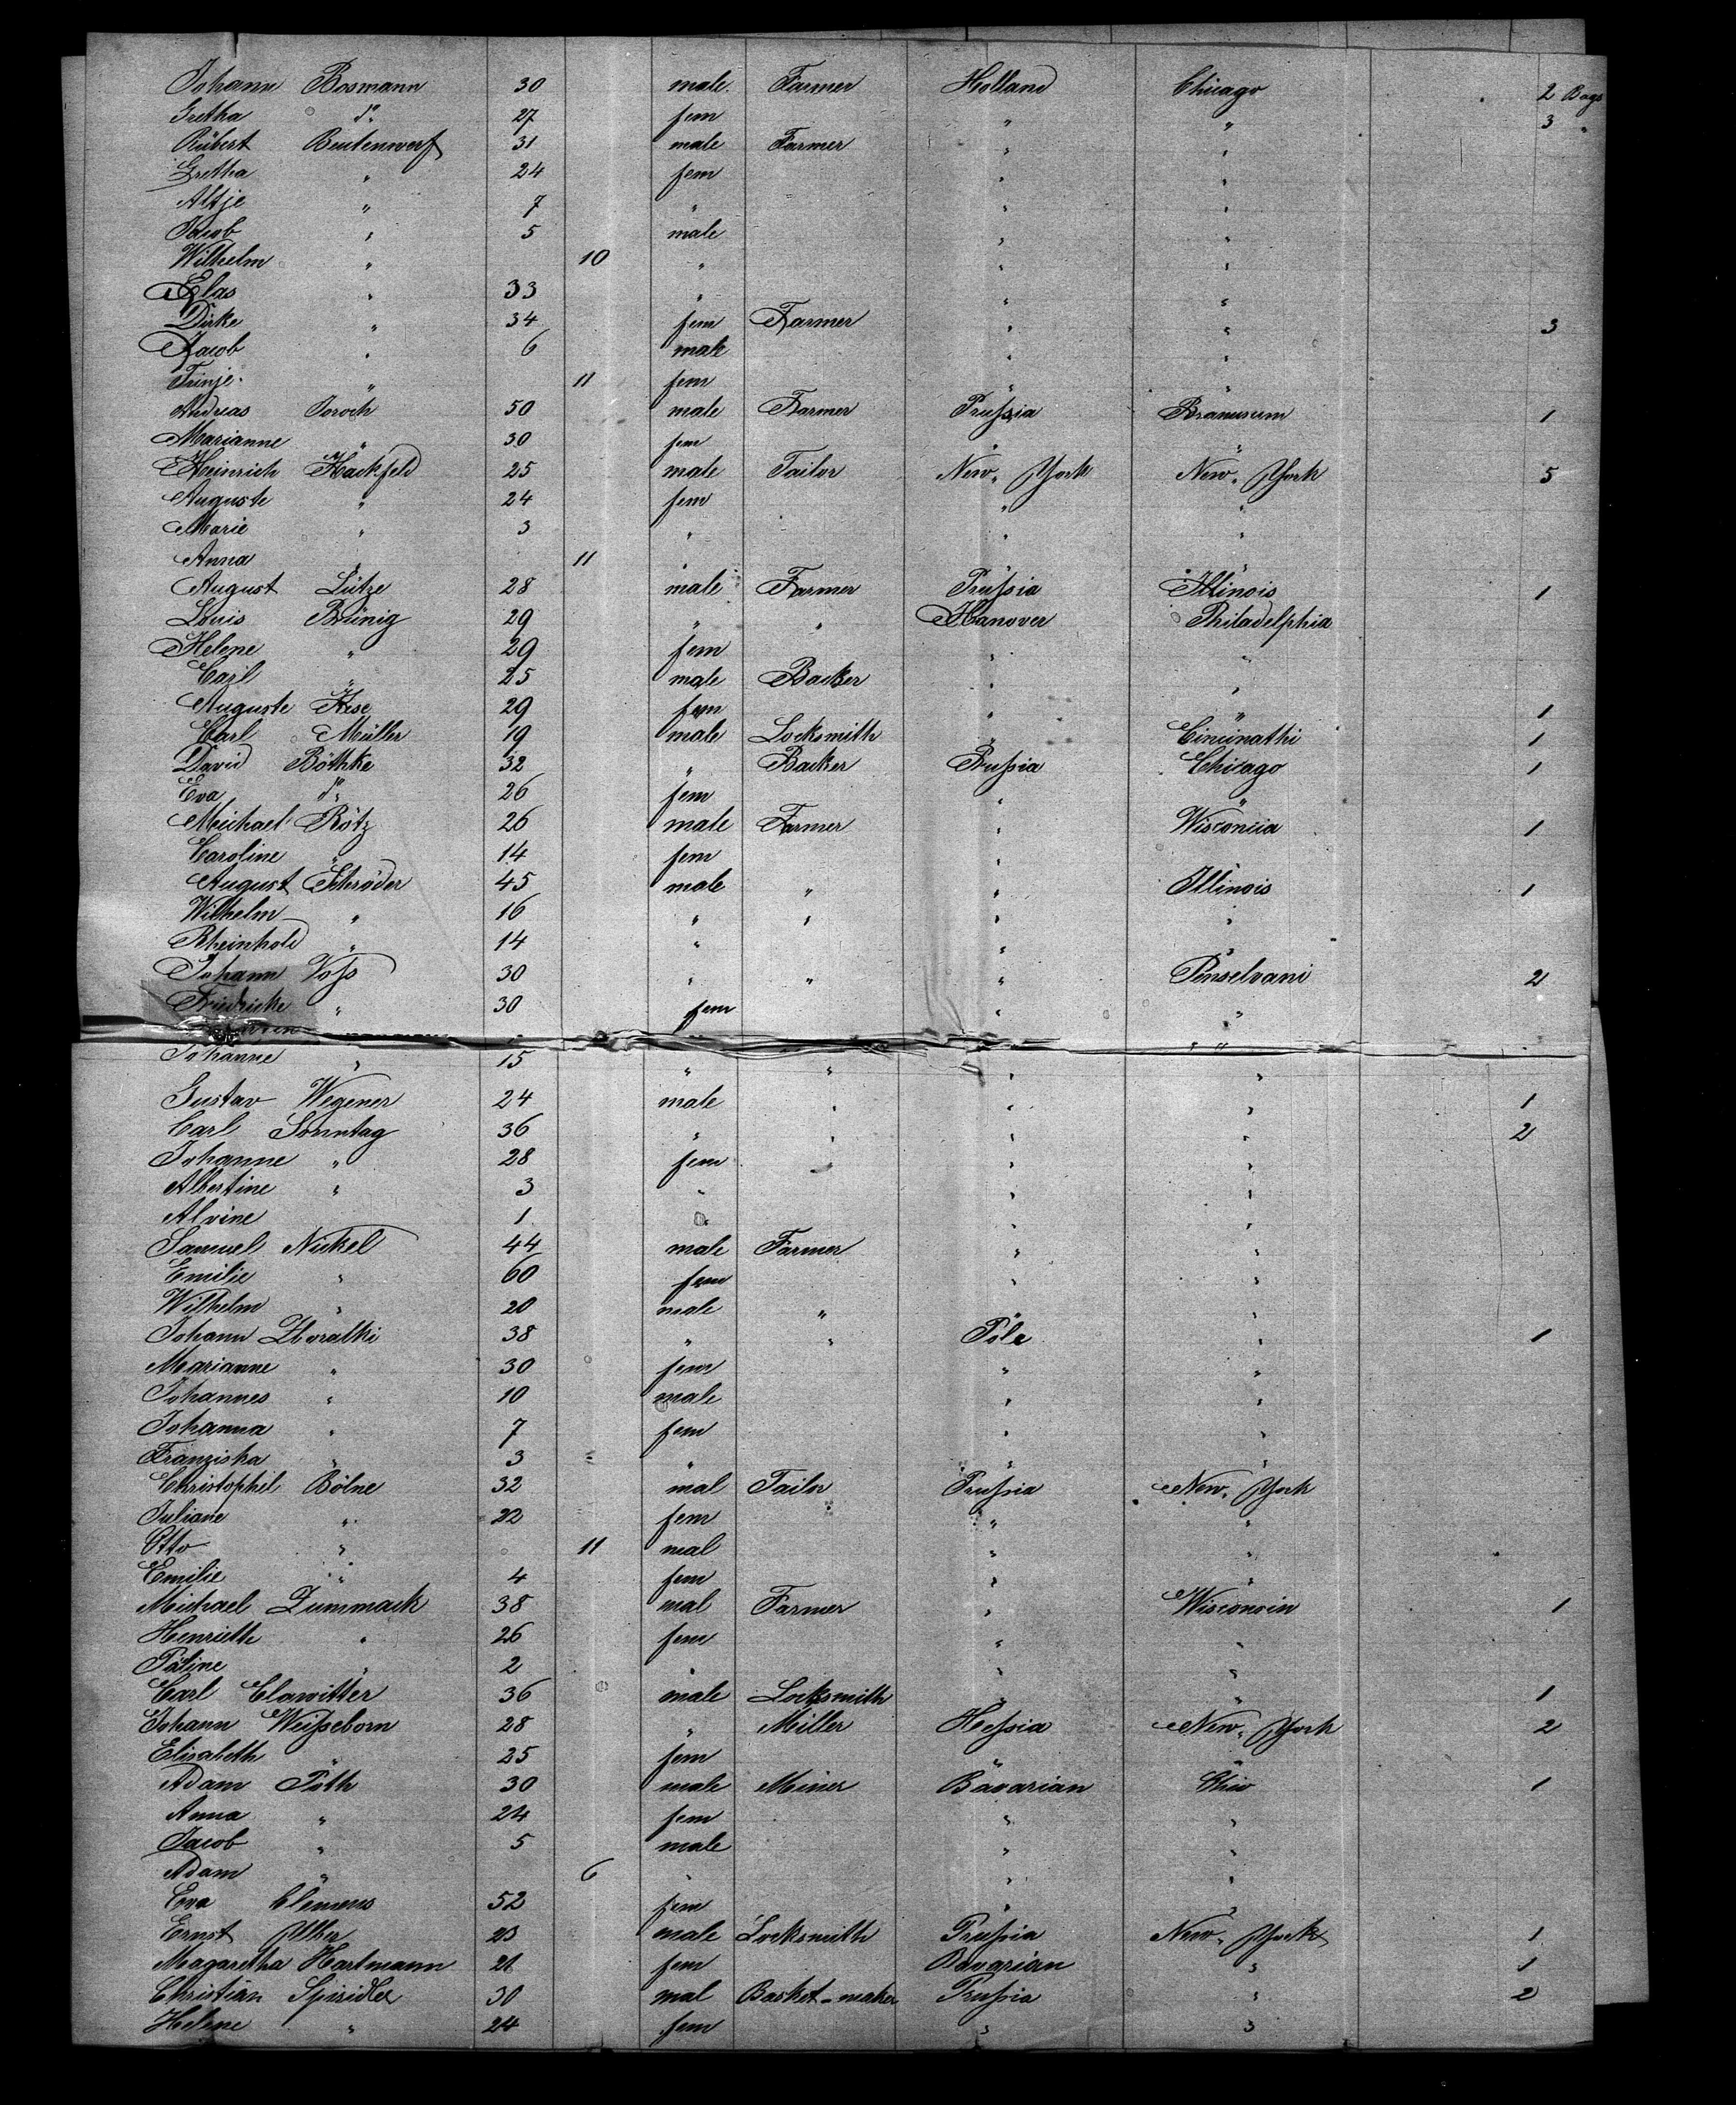 Johann Bosmann 30 male Farmer Holland Chicago 2 Bags
Gretha do 27 fem " " 3 "
Rübert Beutenwerf 31 male Farmer " "
Gretha " 24 fem " "
Altje " 7 " " "
Jacob " 5 male " "
Wilhelm " 10 " " "
Elas " 33 " " "
Dirke " 34 fem Farmer " " 3
Jacob " 6 male " "
Trinje " 11 fem " "
Andreas Joroch 50 male Farmer Prußia 1
Marianne " 30 fem " "
Heinrich Hackfeld 25 male Tailor New-York New-York 5
Auguste " 24 fem " "
Marie " 3 " " "
Anna " 11 " " "
August Lütze 28 male Farmer Prußia Illinois 1
Louis Brünig 29 " " Hanover Philadelphia
Helene " 29 fem " "
Carl " 25 male Backer " "
Auguste Hese 29 fem " " 1
Carl Müller 19 male Locksmith " Cincinathi 1
David Böthke 32 " Backer Prußia Chicago 1
Eva do 26 fem " "
Michael Rötz 26 male Farmer " Wisconcia 1
Caroline " 14 fem "
August Schröder 45 male " " Illinois 1
Wilhelm " 16 " " " "
Rheinhold " 14 " " "
Johann Voß 30 " " " Penselvani 2
Friedricke " 30 fem " "
Johanne " 15 " " " "
Gustav Wegener 24 male " " " 1
Carl Sonntag 36 " " " " 2
Johanne " 28 fem " "
Albertine " 3 " " "
Alvine 1 " " "
Samuel Nickel 44 male Farmer " "
Emilie " 60 fem " "
Wilhelm " 20 male " "
Johann Zboralki 38 " " Pole " 1
Marianne " 30 fem " "
Johannes " 10 male " "
Johanna " 7 fem " "
Franziska " 3 " " "
Christophel Bölne 32 mal Tailor Prußia New-York
Juliane " 22 fem " "
Otto " 11 mal " "
Emilie " 4 fem " "
Michael Zummack 38 mal Farmer " Wisconsin 1
Henriette " 26 fem " "
Paline " 2 " " "
Carl Clawitter 36 male Locksmith " " 1
Johann Weißeborn 28 " Miller Heßia New-York 2
Elisabeth " 25 fem " "
Adam Poth 30 male Miner Bavarian Ohio 1
Anna " 24 fem " "
Jacob " 5 male " "
Adam " 6 " " "
Eva Clemens 52 fem " "
Ernst Ulber 23 male Locksmith Prußia New-York 1
Magaretha Hartmann 21 fem Bavarian " 1
Christian Spiridler 30 mal Basket-maker Prußia " 2
Helene " 24 fem " "